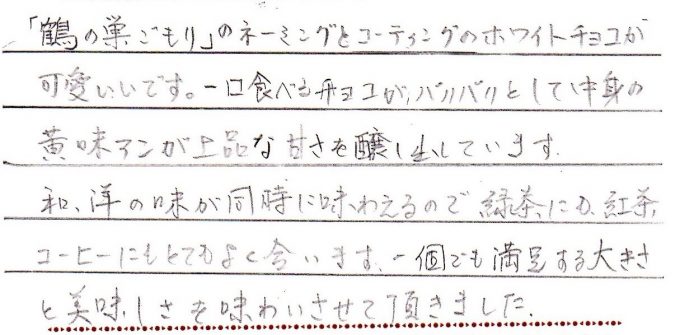 「鶴の巣ごもり」のネーミングとコーティングのホワイトチョコが
可愛いいです。一口食べるチョコが、バリバリとして中身の
黄味アンが上品な甘さを醸し出しています。
和、洋の味が同時に味わえるので、緑茶にも、紅茶
コーヒーにもとてもよく合います。一個でも満足する大きさ
と美味しさを味わいさせて頂きました。